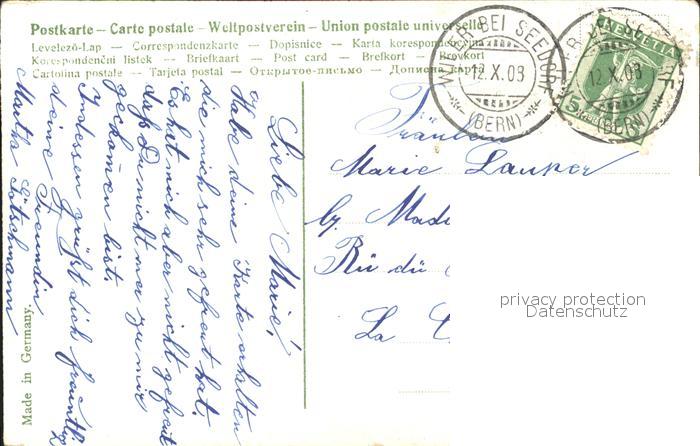 Postkarte – Carte postale – Weltpostverein – Union postale universelle
Levelező-Lap — Correspondenzkarte — Dopisnice — Karta korespondencyjna
Korespondenční listek — Briefkaart — Post card — Brefkort — Brevkort
Cartolina postale — Tarjeta postal — Открытое-письмо — Дописна карта
WILER BEI SEEDORF
12.X.08
(BERN)
WILER BEI SEEDORF
12.X.08
(BERN)
HELVETIA
5
Fräulein
Marie Lauper
by. Mad
Rü dü
La C
privacy protection
Datenschutz
Liebe Marie!
Habe deine Karte erhalten
die mich sehr gefreut hat.
Es hat mich aber nicht gefreut
daß Du nicht mer zu mir
gekommen bist.
Indessen grüßt dich freundl.
deine Freundin
Martha Götschmann
Made in Germany.